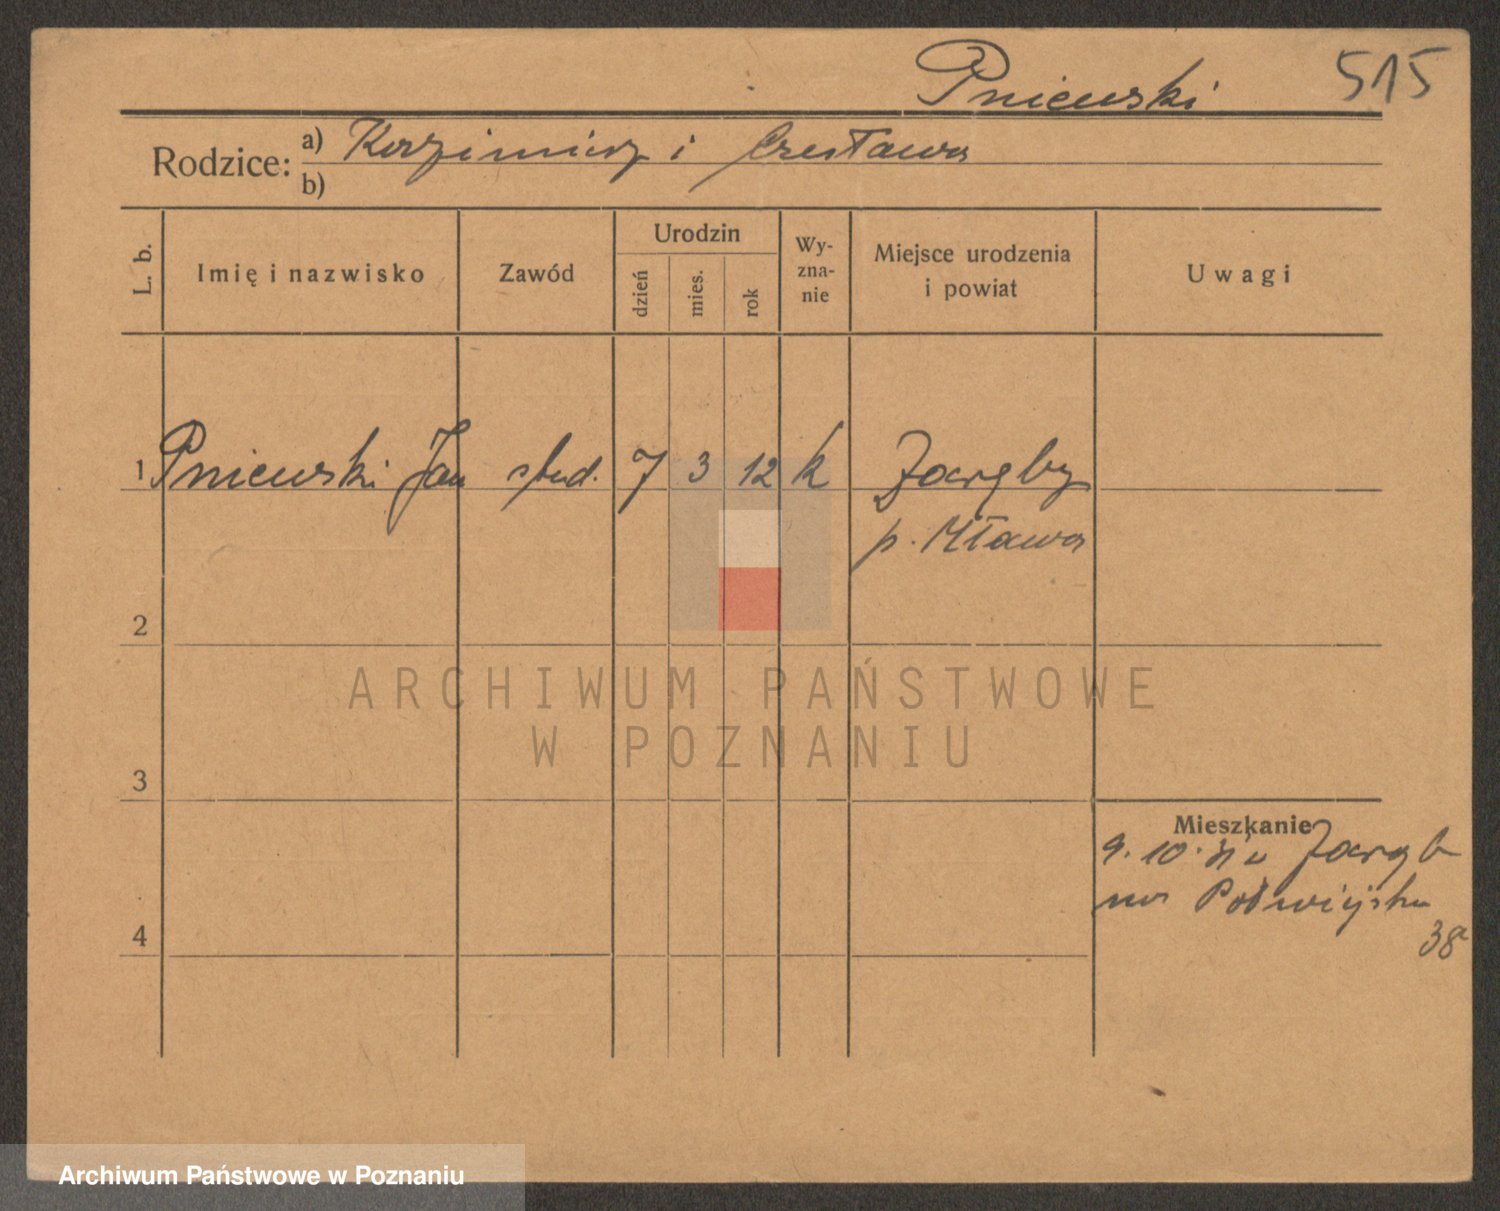 Pniewski 515
Rodzice: a) Kazimierz i Czesława
b)
L. b. Imię i nazwisko Zawód Urodzin dzień mies. rok Wy-zna-nie Miejsce urodzenia i powiat Uwagi
1 Pniewski Jan stud. 7 3 12 k Zaręby
p. Mława
2
ARCHIWUM PAŃSTWOWE
W POZNANIU
3
Mieszkanie
9. 10. z Zaręb
na Półwiejska
38a
4
Archiwum Państwowe w Poznaniu